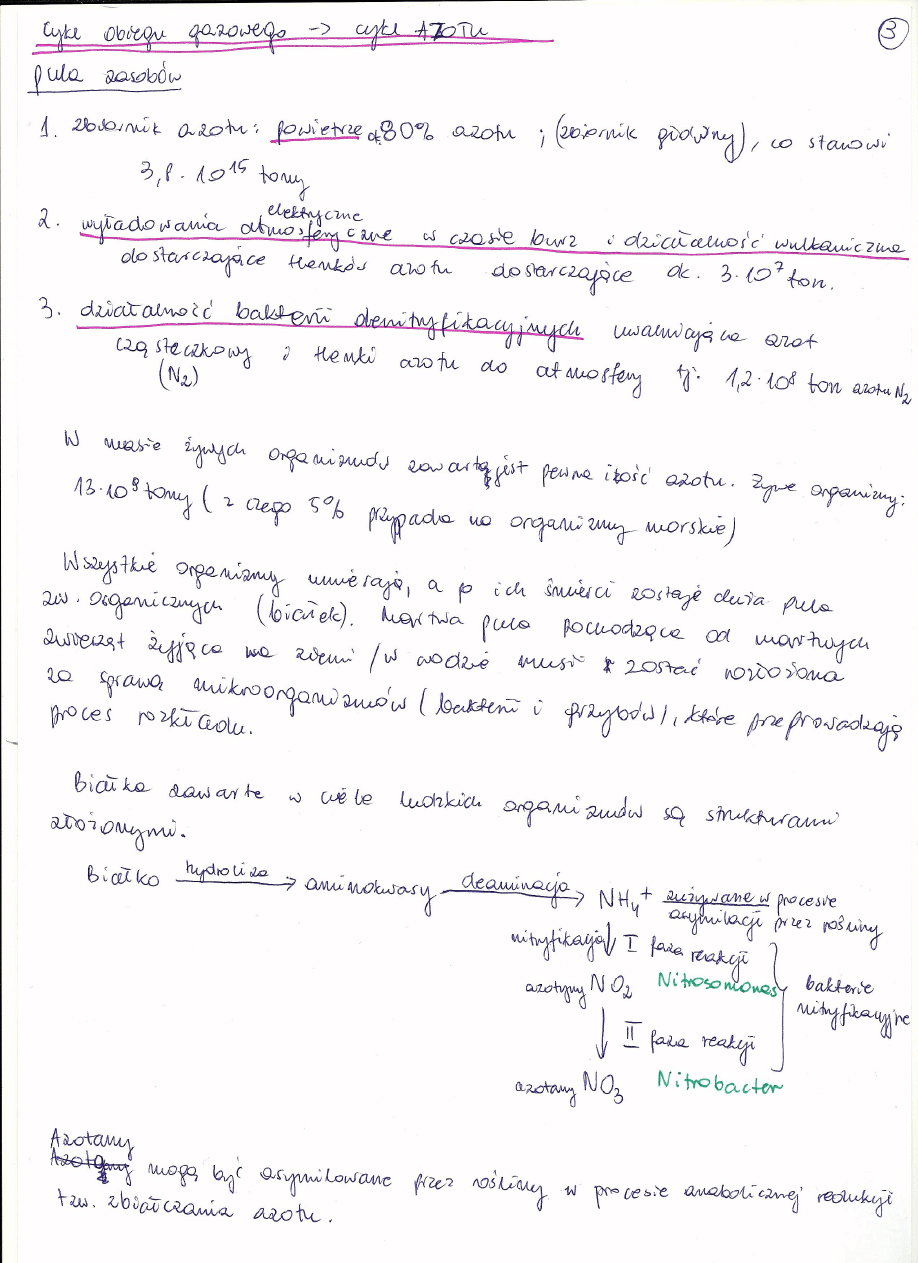 Cykl obiegu gazowego -> cykl AZOTU
3
pula zasobów
1. zbiornik azotu: powietrze ok. 80% azotu ; (zbiornik główny), co stanowi
3,8 · 10¹⁵ tony
elektryczne
2. wyładowania atmosferyczne w czasie burz i działalność wulkaniczna
dostarczające tlenków azotu dostarczające ok. 3·10⁷ ton.
3. działalność bakterii denitryfikacyjnych uwalniająca azot
cząsteczkowy i tlenki azotu do atmosfery tj. 1,2·10⁸ ton azotu N₂
(N₂)
W masie żywych organizmów zawarta jest pewna ilość azotu. Żywe organizmy:
13·10⁹ tony (z czego 5% przypada na organizmy morskie)
Wszystkie organizmy umierają, a po ich śmierci zostaje duża pula
zw. organicznych (białek). Martwa pula pochodząca od martwych
zwierząt żyjąca na ziemi / w wodzie musi zostać rozłożona
za sprawą mikroorganizmów (bakterii i grzybów), które przeprowadzają
proces rozkładu.
Białka zawarte w ciele ludzkich organizmów są strukturami
złożonymi.
Białko hydroliza -> aminokwasy deaminacja -> NH₄⁺ zużywane w procesie
asymilacji przez rośliny
nityfikacja ↓ I faza reakcji
azotyny NO₂ Nitrosomonas
bakterie
nityfikacyjne
↓ II faza reakcji
azotany NO₃ Nitrobacter
Azotany
mogą być asymilowane przez rośliny w procesie anabolicznej redukcji
tzw. zbiałczania azotu.